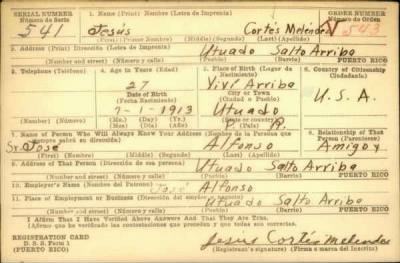 SERIAL NUMBER
Número de Serie
541
1. Name (Print) Nombre (Letra de Imprenta)
Jesús Cortés Melendez
(First) (Primer Nombre) (Middle) (Segundo) (Last) (Apellido)
ORDER NUMBER
Número de Orden
543
2. Address (Print) Dirección (Letra de Imprenta)
Utuado Salto Arriba
(Number and street) (Número y calle) (Pueblo) (Barrio) PUERTO RICO
3. Telephone (Teléfono)
4. Age in Years (Edad)
27
Date of Birth
(Fecha Nacimiento)
7-1-1913
(Mo.) (Day) (Yr.)
(Mes) (Día) (Año)
5. Place of Birth (Lugar de Nacimiento)
Viví Arriba
City or Town
(Ciudad o Pueblo)
Utuado
P. R.
6. Country of Citizenship
Ciudadanía
U. S. A.
7. Name of Person Who Will Always Know Your Address (Nombre de la Persona que siempre sabrá su dirección)
Sr. José Alfonso
(First) (Nombre) (Middle) (Segundo) (Last) (Apellido)
8. Relationship of That Person (Parentesco)
Amigo
9. Address of That Person (Dirección de esa persona)
Utuado Salto Arriba
(Number and street) (Número y calle) (Pueblo) (Barrio) PUERTO RICO
10. Employer's Name (Nombre del Patrono)
José Alfonso
11. Place of Employment or Business (Dirección del empleo o negocio)
Utuado Salto Arriba
(Number and street) (Número y calle) (Pueblo) (Barrio) PUERTO RICO
I Affirm That I Have Verified Above Answers And That They Are True.
(Afirmo que he verificado las contestaciones que preceden y que todas son ciertas.)
REGISTRATION CARD
D. S. S. Form 1
PUERTO RICO
Jesús Cortés Melendez
(Registrant's signature) (Firma o marca del inscrito)